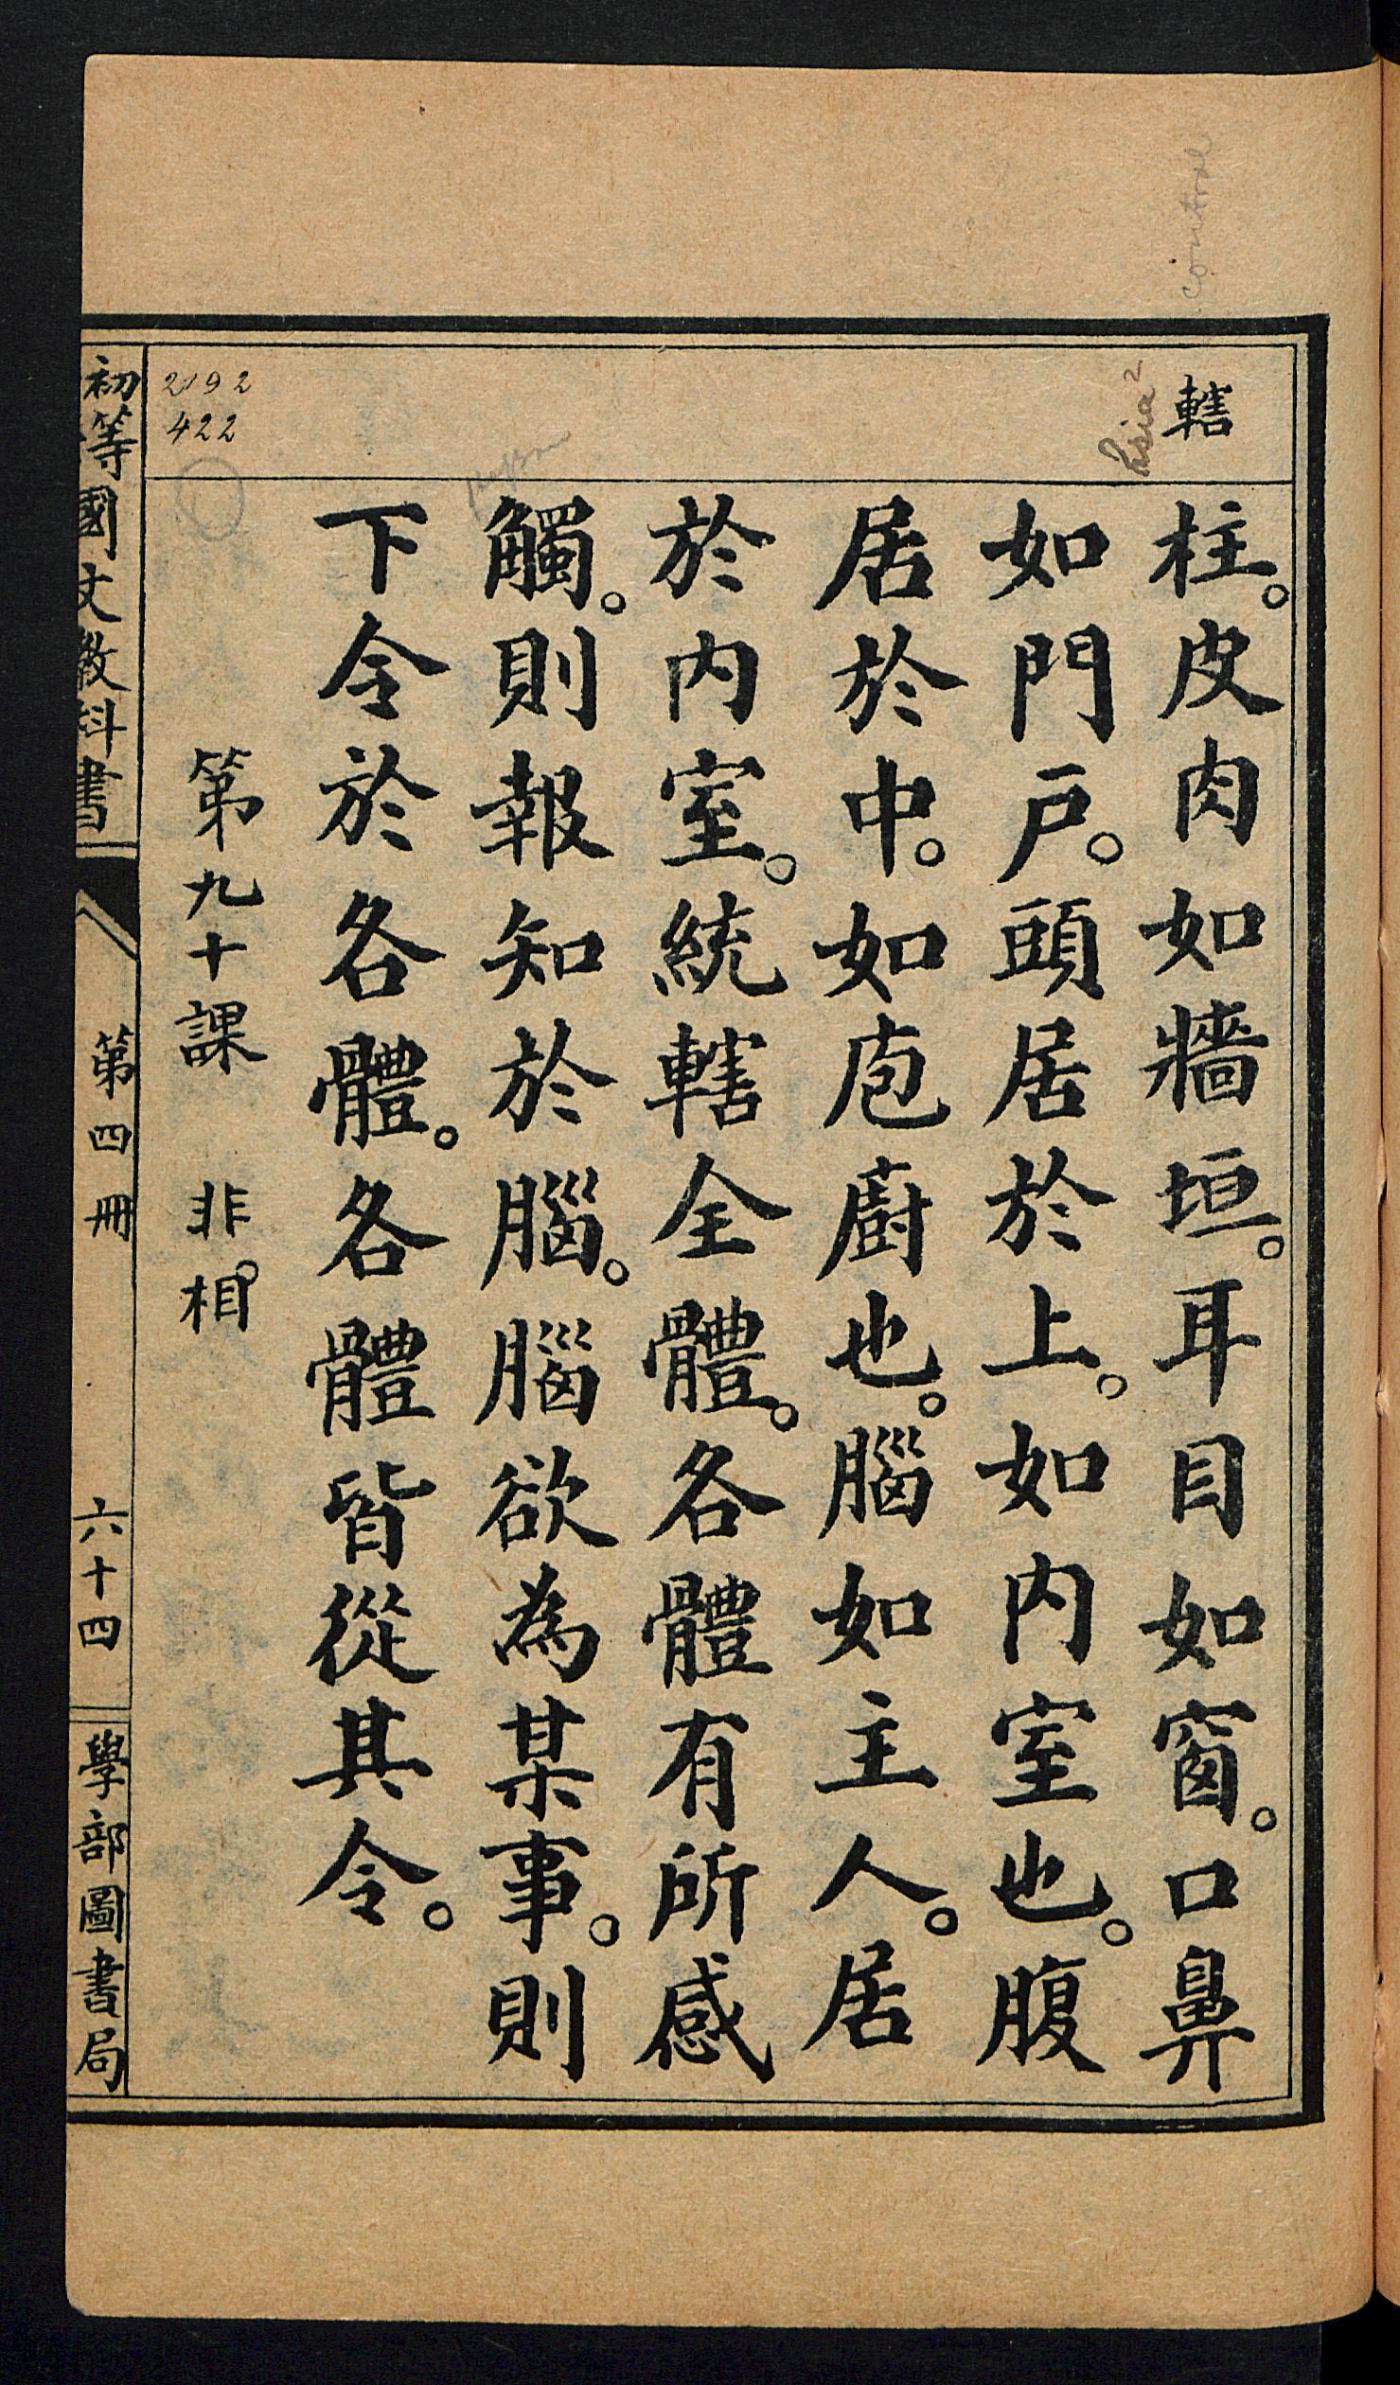 control
轄
hsia²
柱。皮肉如牆垣。耳目如窗。口鼻
如門戶。頭居於上。如內室也。腹
居於中。如庖廚也。腦如主人。居
於內室。統轄全體。各體有所感
觸。則報知於腦。腦欲為某事。則
下令於各體。各體皆從其令。
2192
422
第九十課 非。相
初等國文教科書 第四冊 六十四 學部圖書局